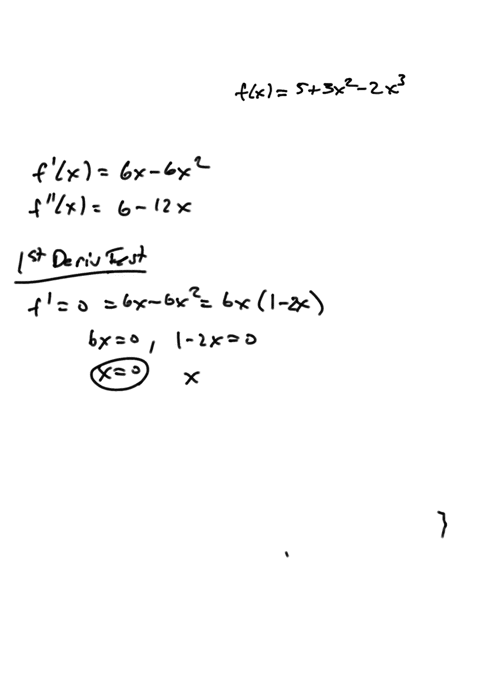 f(x) = 5+3x²-2x³
f'(x) = 6x-6x²
f"(x) = 6-12x
1st Deriv Test
f' = 0 = 6x-6x² = 6x(1-2x)
6x=0, 1-2x=0
x=0 x